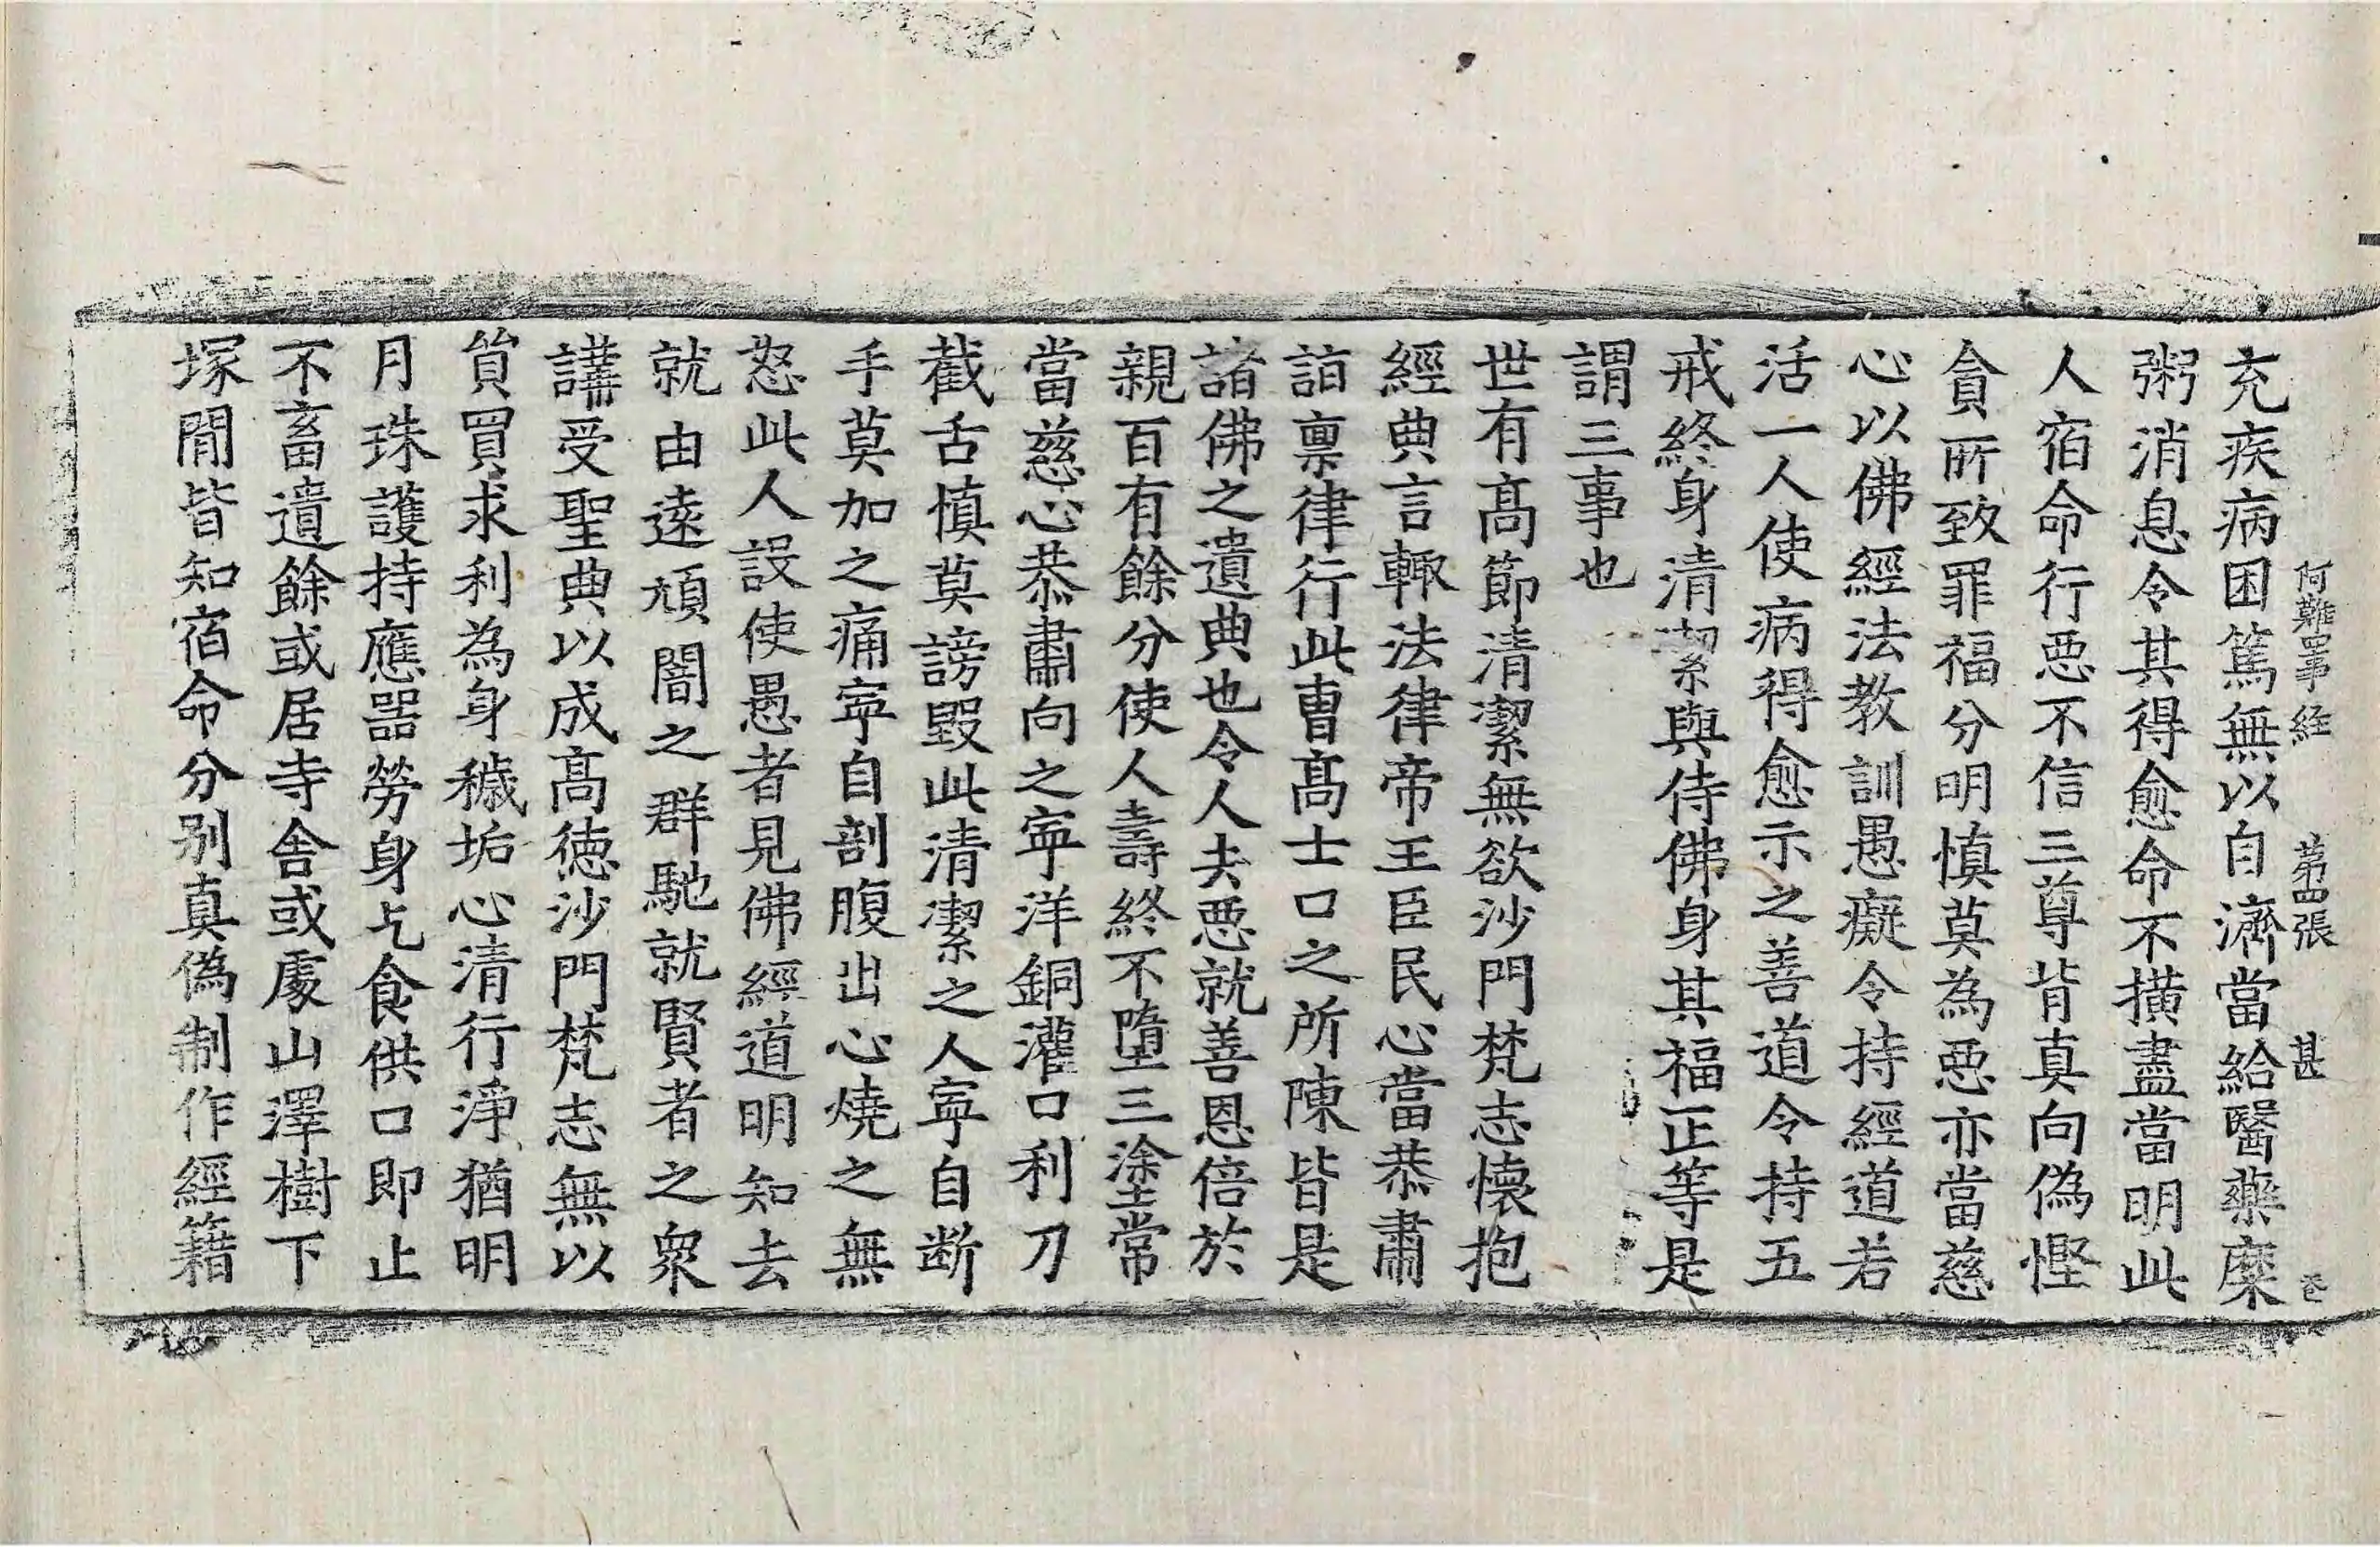 阿難四事経　第四張　甚
充疾病困篤無以自濟當給醫藥糜
粥消息令其得愈命不撗盡當明此
人宿命行惡不信三尊背真向偽慳
貪所致罪福分明慎莫為惡亦當慈
心以佛經法教訓愚癡令持經道若
活一人使病得愈示之善道令持五
戒終身清潔與侍佛身其福正等是
謂三事也
世有髙節清潔無欲沙門梵志懷抱
經典言輙法律帝王臣民心當恭肅
諮禀律行此曺髙士口之所陳皆是
諸佛之遺典也令人去惡就善恩倍於
親百有餘分使人壽終不墮三塗常
當慈心恭肅向之寧洋銅灌口利刀
截舌慎莫謗毀此清潔之人寧自断
手莫加之痛寧自剖腹出心燒之無
怒此人設使愚者見佛經道明知去
就由遠頑闇之群馳就賢者之衆
講受聖典以成髙德沙門梵志無以
貿買求利為身穢垢心清行淨猶明
月珠護持應器勞身乞食供口即止
不畜遺餘或居寺舍或處山澤樹下
塚閒皆知宿命分别真偽制作經籍